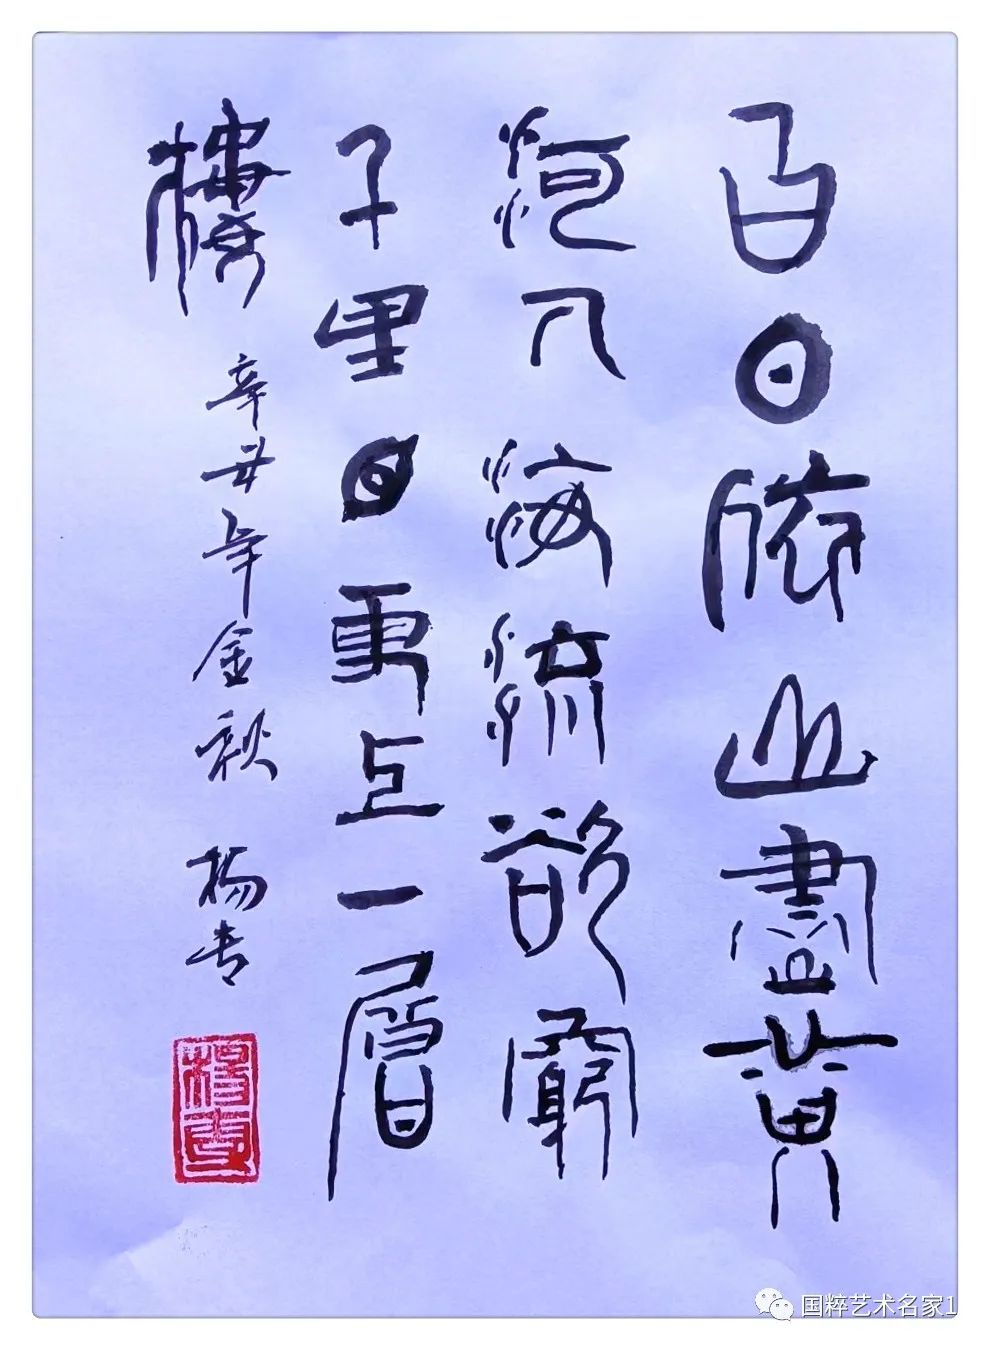 白日依山盡黃
河入海流欲窮
千里目更上一層
樓 辛丑年金秋 杨
国粹艺术名家1